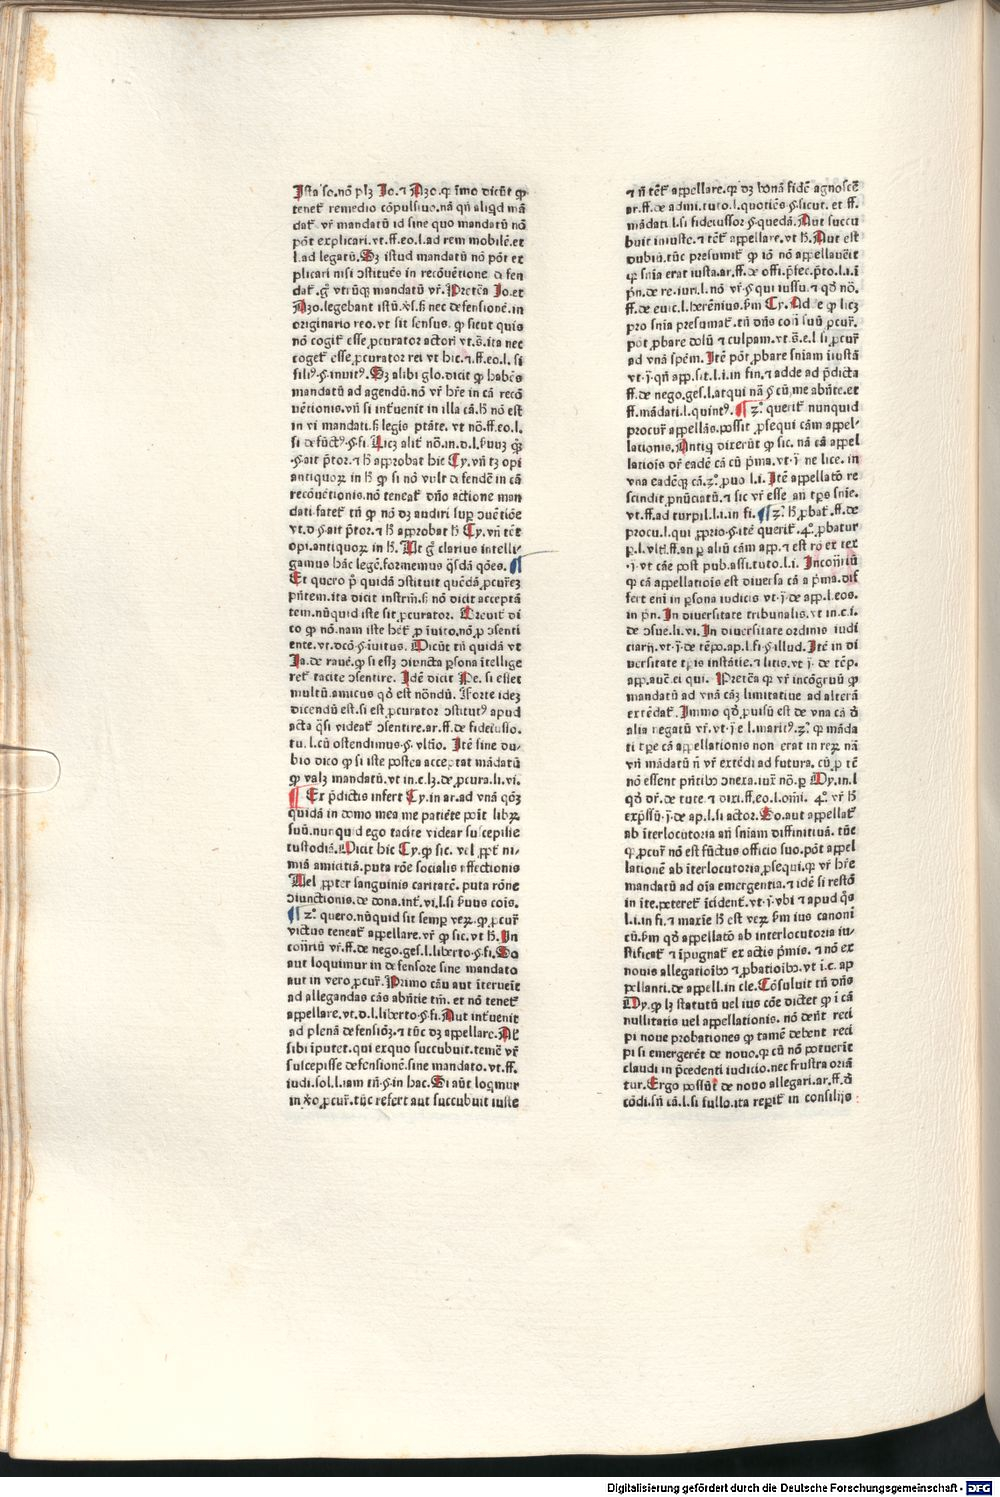 Ista so. nō plʒ Jo. ⁊ Aʒo. qꝛ īmo dicūt ꝙ
tenetᷣ remedio cōpulsiuo. nā qñ aliqd mā
datᷣ vr̄ mandatū id sine quo mandatū nō
pōt explicari. vt. ff. eo. l. ad rem mobilē. et
l. ad legatū. Sʒ istud mandatū nō pōt ex
plicari nisi ↄstituēs in recōuētione defen
datᷣ. gͦ vti ūqʒ mandatū vr̄. Pretea Jo. et
Aʒo. legebant istū .§. s. nec defensionē. in
originario reo. vt sit sensus. ꝙ sicut quis
nō cogitᷣ esse ꝓcurator actori vt. s̄. ita nec
cogetᷣ esse ꝓcurator rei vt hic. ⁊. ff. eo. l. si
filiꝰ. §. inuitꝰ. Sʒ alibi glo. dicit ꝙ habēs
mandatū ad agendū. nō vr̄ hr̄e in cā recō
uētionis. vñ si intᷣuenit in illa cā. h̄ nō est
in vi mandati. s. legis ptāte. vt nō. ff. eo. l.
si defūctꝰ. §. fi. Licʒ alitᷣ nō. in. d. l. seruuʒ qqʒ
.§. ait p̄tor. ⁊ h̄ approbat hic Cy. vñ tʒ opi
antiquoꝝ in h̄ ꝙ si nō vult defendē in cā
recōuētionis. nō teneatᷣ dn̄o actione man
dati. fatetᷣ tn̄ ꝙ nō dʒ audiri suꝑ ↄuētiōe
vt. d. §. ait p̄tor. ⁊ h̄ approbat h̄ Cy. vñ tēt
opi. antiquoꝝ in h̄. Ut gͦ clarius intelli⸗
gamus hāc legē. formemus qͥsdā qōes. ¶
Et quero pͦ quidā ↄstituit quēdā ꝓcurēʒ
pn̄tem. ita dicit instrm̄. s. nō dicit acceptā
tem. nūquid iste sit ꝓcurator. Breuitᷣ di
co ꝙ nō. nam iste hētᷣ ꝓ īuito. nō ꝓ ↄsenti
ente. vt. dcō. §. īuitus. Dicūt tn̄ quidā vt
Ja. de rauē. ꝙ si essʒ ↄiuncta ꝑsona ītellige
retᷣ tacite ↄsentire. Idē dicit Pe. si esset
multū amicus qd̄ est nōndū. Forte ideʒ
dicendū est. si est ꝓcurator ↄstitutꝰ apud
acta qͥsi videatᷣ ↄsentire. ar. ff. de fideiusso.
tu. l. cū ostendimus. §. vltīo. Itē sine du⸗
bio dico ꝙ si iste postea acceptat mādatū
ꝙ valʒ mandatū. vt in. c. lʒ. de ꝓcura. li. vi.
¶ Ex p̄dictis infert Cy. in ar. ad vnā qōʒ
quidā in domo mea me patiēte poīt librꝝ
suū. nunquid ego tacite videar suscepisse
custodiā. Dicit hic Cy. ꝙ sic. vel ꝓpt̄ ni⸗
miā amicitiā. puta rōe socialis effectionis
Uel ꝓpter sanguinis caritatē. puta rōne
ↄiunctionis. de dona. intᷣ. vi. l. si seruus cōis.
¶ 2ͦ. quero. nūquid sit semꝑ veꝝ. ꝙ ꝓcur̄
victus teneatᷣ appellare. vr̄ ꝙ sic. vt h̄. In
cōtr̄iū vr̄. ff. de nego. ges. l. liberto. §. fi. So
aut loquimur in defensore sine mandato
aut in vero ꝓcur̄. Primo cāu aut īterueīt
ad allegandas cās abn̄tie tm̄. et nō tenetᷣ
appellare. vt. d. l. liberto. §. fi. Aut intᷣuenit
ad plenā defensiōʒ. ⁊ tūc dʒ appellare. Al̄
sibi īputet. qui exquo succubuit. temē vr̄
suscepisse defensionē. sine mandato. vt. ff.
iudi. sol. l. iam tn̄. §. in hac. Si aūt loqmur
in v̄o ꝓcur̄. tūc refert aut succubuit iuste
⁊ ñ tētᷣ appellare. qꝛ dʒ bonā fidē agnoscē
ar. ff. de admi. tuto. l. quotiēs. §. sicut. et ff.
mādati. l. si fideiussor. §. quedā. Aut succu
buit iniuste. ⁊ tētᷣ appellare. vt h̄. Aut est
dubiū. tūc presumitᷣ ꝙ iō nō appellauerit
qꝛ snīa erat iusta. ar. ff. de offi. p̄fec. p̄to. l. i. ī
pn̄. de re. iur. l. nō vr̄. §. qui iussu. ⁊ qd̄ nō.
ff. de euic. l. herēnius. sm̄ Cy. Ad e ꝙ licʒ
pro snīa presumatᷣ. tn̄ dn̄s cō suū ꝓcur̄.
pōt ꝓbare dolū ⁊ culpam. vt. s̄. e. l. si ꝓcur̄
ad vnā spēm. Itē pōt ꝓbare sniam iiustā
vt. j̄. qn̄ app. sit. l. i. in fin. ⁊ adde ad p̄dicta
ff. de nego. ges. l. atqui nā. §. cū me abn̄te. et
ff. mādati. l. quintꝰ. ¶ 2ͦ. queritᷣ nunquid
procur̄ appellās. possit ꝓsequi cām appel⸗
lationis. Antiq dixerūt ꝙ sic. nā cā appel
latiois dr̄ eadē cā cū p̄ma. vt. j̄. ne lice. in
vna eadēqʒ cā. 2ͦ. ꝓuo. l. i. Itē appellatō re
scindit ꝓnūciatū. ⁊ sic vr̄ esse an̄ tp̄s snīe.
vt. ff. ad turpil. l. i. in fi. ¶ 2ͦ. h̄ ꝓbatᷣ. ff. de
procu. l. qui ꝓprio. §. itē queritᷣ. 4ͦ. ꝓbatur
ꝑ. l. vltī. ff. an ꝑ aliū cām app. ⁊ est rō ex tex
.j̄. vt cāe post pub. assi. tuto. l. i. Incōtr̄iū
qꝛ cā appellatiois est diuersa cā a p̄ma. dif
fert eni in ꝑsona iudicis vt. j̄. de app. l. eos.
in pn̄. In diuersitate tribunalis. vt in. c. i.
de ↄsue. li. vi. In diuersitate ordinis iudi
ciarij. vt. j̄. de tēpo. ap. l. fi. §. illud. Itē in di
uersitate tp̄is instātie. ⁊ litis. vt j̄. de tēp.
app. auē. ei qui. Pretea qꝛ vr̄ incōgruū ꝙ
mandatū ad vnā cāʒ limitatiue ad alterā
extēdatᷣ. Immo qd̄ ꝓuisū est de vna cā d̄
alia negatū vr̄. vt. j̄. e. l. maritꝰ. 2ͦ. qꝛ māda
ti tp̄e cā appellationis non erat in reꝝ nā
vn̄ mādatū n̄ vr̄ extēdi ad futura. cū ꝓ tē
nō essent pn̄tibꝰ ↄnexa. iurꝭ nō. ꝑ Dy. in. l
qd̄ dr̄. de tute. ⁊ dixi. ff. eo. l. oīni. 4ͦ. vr̄ h̄
exp̄ssū. j̄. de ap. l. si actor. So. aut appellatᷣ
ab īterlocutoria an̄ sniam diffinitiuā. tūc
qꝛ ꝓcur̄ nō est fūctus officio suo. pōt appel
lationē ab īterlocutoria ꝓsequi. qꝛ vr̄ hr̄e
mandatū ad oīa emergentia. ⁊ idē si restō
in īte. peteretᷣ īcidentᷣ. vt. j̄. vbi ⁊ apud qͥs
l. i. in fi. ⁊ maxīe h̄ est veꝝ sm̄ ius canoni
cū. sm̄ qd̄ appellatō ab interlocutoria iu⸗
stificatᷣ ⁊ īpugnatᷣ ex actis p̄mis. ⁊ nō ex
nouis allegatioībꝰ ⁊ ꝓbatioībꝰ. vt ī. c. ap
pellanti. de appell. in cle. Cōsuluit tn̄ dn̄s
Dy. ꝙ lʒ statutū vel ius cōe dictet ꝙ ī cā
nullitatis uel appellationis. nō dent̄ reci
pi noue probationes ꝙ tamē debent reci
pi si emergerēt de nouo. qꝛ cū nō potuerīt
claudi in p̄cedenti iudicio. nec frustra oriā
tur. Ergo possūt de nouo allegari. ar. ff. d̄
cōdi. sn̄ cā. l. si fullo. ita reꝑitᷣ in consilijs
Digitalisierung gefördert durch die Deutsche Forschungsgemeinschaft - DFG